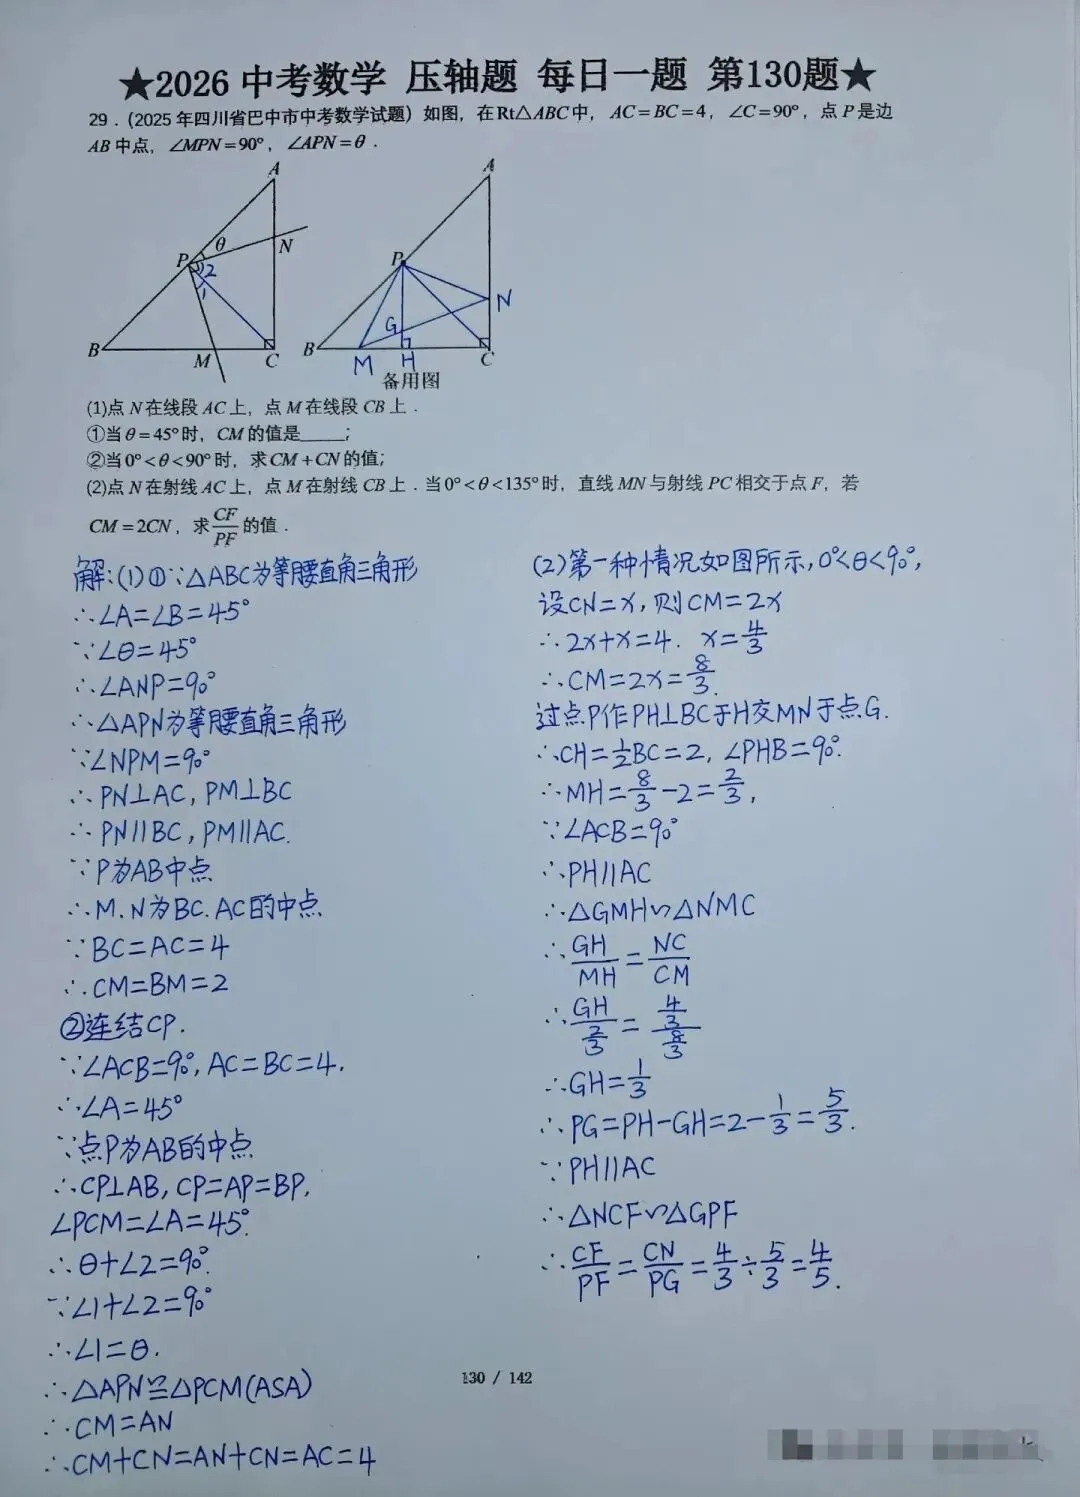 ★2026 中考数学 压轴题 每日一题 第130题★
29．(2025年四川省巴中市中考数学试题) 如图，在Rt△ABC中，AC=BC=4，∠C=90°，点P是边
AB中点，∠MPN=90°，∠APN=θ．
A
P
θ
N
2
1
B
M
C
A
P
N
G
B
M
H
C
备用图
(1)点N在线段AC上，点M在线段CB上．
①当θ=45°时，CM的值是____；
②当0°<θ<90°时，求CM+CN的值；
(2)点N在射线AC上，点M在射线CB上．当0°<θ<135°时，直线MN与射线PC相交于点F，若
CM=2CN，求CF/PF的值．
解:(1)①∵△ABC为等腰直角三角形
∴∠A=∠B=45°
∵∠θ=45°
∴∠ANP=90°
∴△APN为等腰直角三角形
∵∠NPM=90°
∴PN⊥AC, PM⊥BC
∴PN∥BC, PM∥AC.
∵P为AB中点
∴M.N为BC.AC的中点
∵BC=AC=4
∴CM=BM=2
②连结CP.
∵∠ACB=90°, AC=BC=4.
∴∠A=45°
∵点P为AB的中点
∴CP⊥AB, CP=AP=BP,
∠PCM=∠A=45°.
∴θ+∠2=90°.
∵∠1+∠2=90°
∴∠1=θ.
∴△APN≌△PCM(ASA)
∴CM=AN
∴CM+CN=AN+CN=AC=4
(2)第一种情况如图所示,0°<θ<90°,
设CN=x,则CM=2x
∴2x+x=4. x=4/3
∴CM=2x=8/3.
过点P作PH⊥BC于H交MN于点G.
∴CH=1/2BC=2, ∠PHB=90°.
∴MH=8/3-2=2/3,
∵∠ACB=90°
∴PH∥AC
∴△GMH∽△NMC
∴GH/MH=NC/CM
∴GH/(2/3)=(4/3)/(8/3)
∴GH=1/3
∴PG=PH-GH=2-1/3=5/3.
∵PH∥AC
∴△NCF∽△GPF
∴CF/PF=CN/PG=4/3÷5/3=4/5.
130 / 142